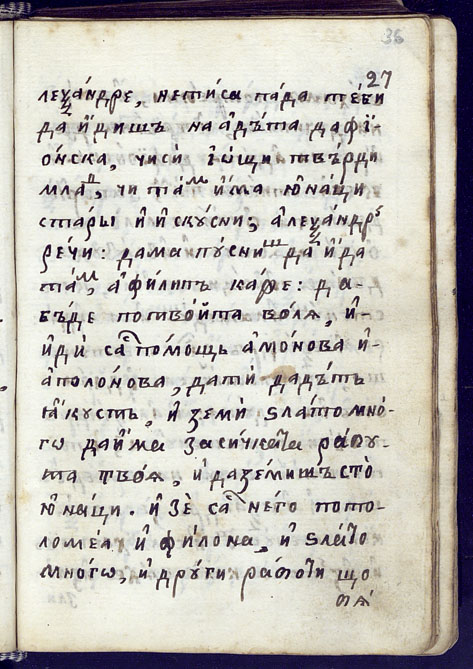 36
27
леѯа́ндре, нети́са па́да те́би
да и҆́дишъ на а҆дъ́та дафї-
о́нска, чиси̇̀ і҆о́щи твъ́рди
мла́д, чи та́м и҆́ма ю҆на́ци
ста́ры и҆ и҆ску́сни, а҆леѯа́ндръ
ре́чи: дама пу́сниш да и҆́да
та́м, а҆фили́пъ ка́же: да-
бъ́де потво́йта во́лѧ, и҆-
и҆ди̇̀ са по́мощь амо́нова и҆-
а҆поло́нова, дати̇̀ даду́тъ
ꙗ҆́кустъ, и҆ земѝ ѕла́то мно́-
гѡ да и҆́ма заси́чката ра́бу-
та твоѧ̀, и҆ дазе́мишъ сто̀
ю҆на́ци. и҆ зѐ са не́го пото-
ломе́а и҆ фи́лона, и҆ ѕла́то
мно́гѡ, и҆ дру́ги ра́боти що
тѧ̀